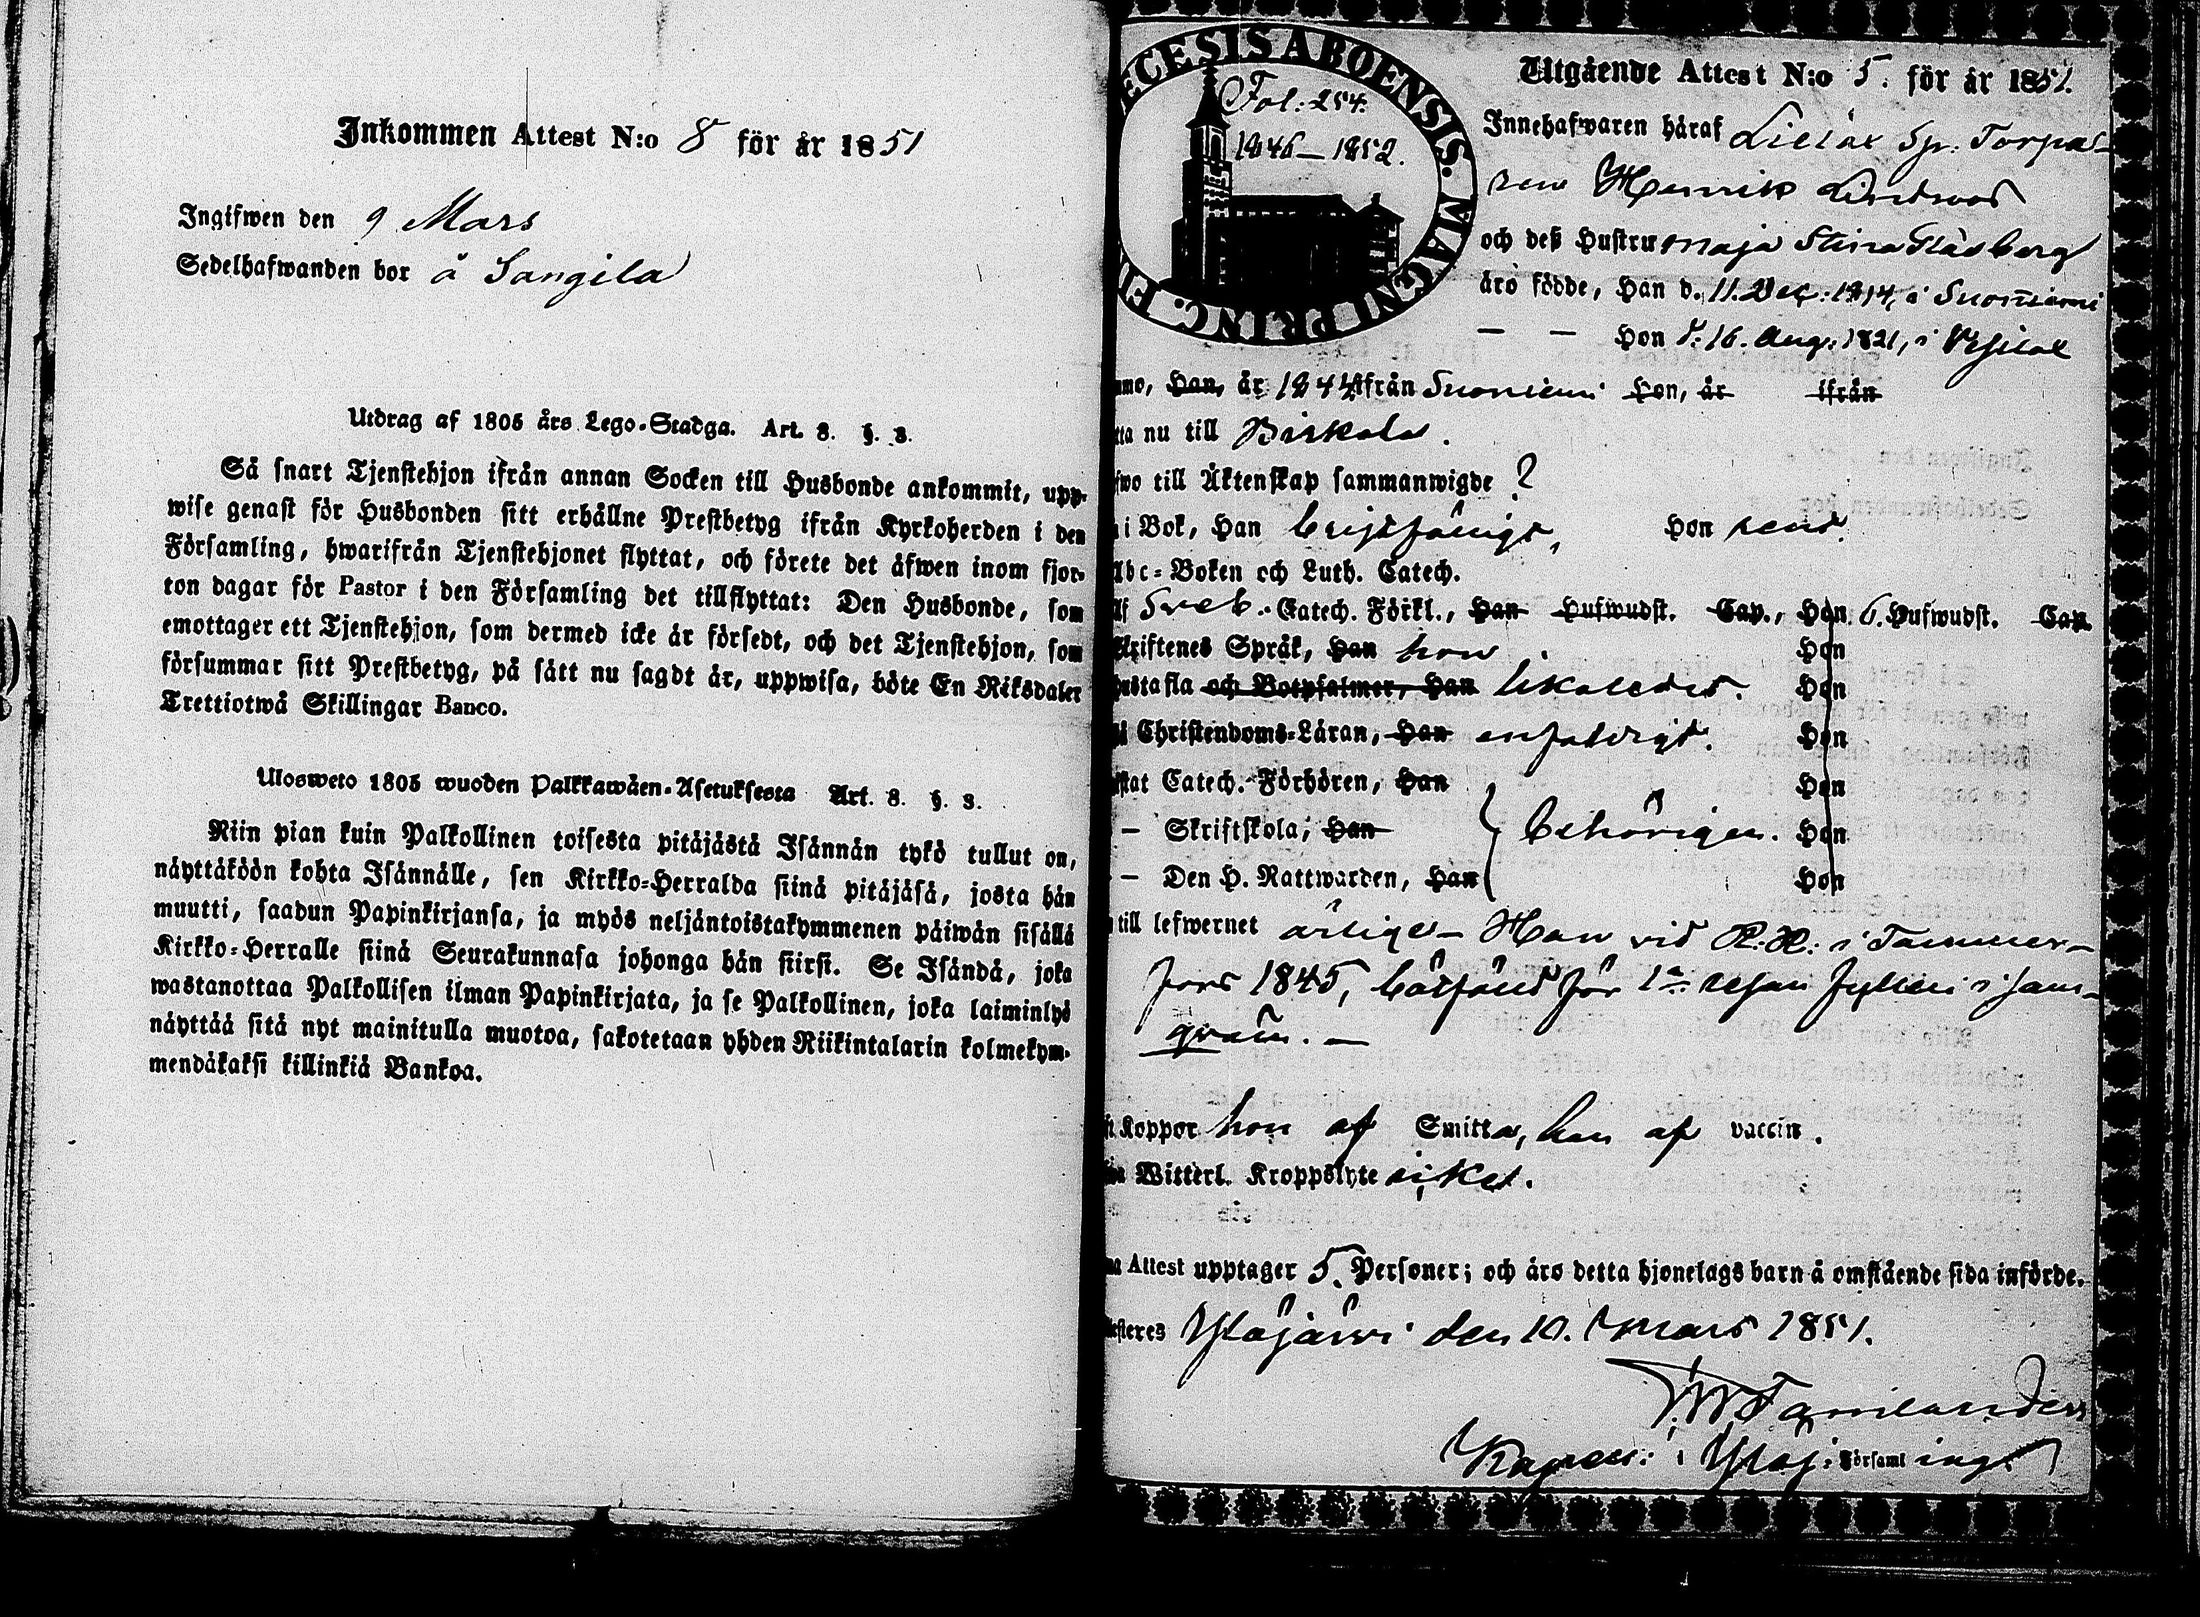 Inkommen Attest N:o 8 för år 1851
Ingifwen den 9 Mars
Sedelhafwanden bor å Sangila
Utdrag af 1805 års Lego-Stadga. Art. 8. §. 3.
Så snart Tjenstehjon ifrån annan Socken till Husbonde ankommit, upp-
wise genast för Husbonden sitt erhållne Prestbetyg ifrån Kyrkoherden i den
Församling, hwarifrån Tjenstehjonet flyttat, och förete det äfwen inom fjor-
ton dagar för Pastor i den Församling det tillflyttat: Den Husbonde, som
emottager ett Tjenstehjon, som dermed icke är försedt, och det Tjenstehjon, som
försummar sitt Prestbetyg, på sätt nu sagdt är, uppwisa, böte En Riksdaler
Trettiotwå Skillingar Banco.
Ulosweto 1805 wuoden Palkkawäen-Asetuksesta Art. 8. §. 3.
Niin pian kuin Palkollinen toisesta pitäjästä Isännän tykö tullut on,
näyttäköön kohta Isännälle, sen Kirkko-Herralda siinä pitäjäsä, josta hän
muutti, saadun Papinkirjansa, ja myös neljäntoistakymmenen päiwän sisällä
Kirkko-Herralle siinä Seurakunnasa johonga hän siirsi. Se Isändä, joka
wastanottaa Palkollisen ilman Papinkirjata, ja se Palkollinen, joka laiminlyö
näyttää sitä nyt mainitulla muotoa, sakotetaan yhden Riikintalarin kolmekym-
mendäkaksi killinkiä Bankoa.
ECESIS ABOENSIS. MAGNI PRINC. FI
Fol: 254.
1846–1852.
Utgående Attest N:o 5. för år 1851.
Innehafwaren häraf Torpa-
ren Henrik Lindroos
och deß Hustru Maja Stina
äro födde, Han d. 11. Dec: 1814, i Suoniemi
— — Hon d: 16. Aug: 1821, i Vesilax
mne, Han, år 1844 ifrån Suoniemi Hon, år ifrån
tta nu till Birkala.
fwo till Äktenskap sammanwigde ?
i Bok, Han Hon
Abc-Boken och Luth. Catech.
af Sveb. Catech. Förkl., Han Hufwudst. Cap., Hon 6. Hufwudst. Cap.
kriftenes Språk, Han hon Hon
hustafla och Botpsalmer, Han likaledes. Hon
i Christendoms-Läran, Han enfaldigt. Hon
istat Catech.-Förhören, Han Hon
— Skriftskola, Han behörigen. Hon
— Den H. Nattwarden, Han Hon
till lefwernet ärliga – Han vid R: R: i Tammer-
fors 1845, bötfälld för 1a resan fylleri i sam-
qväm. —
t Koppor hon af Smitta, han af vaccin.
Witterl. Kroppslyte icke.
na Attest upptager 5. Personer; och äro detta hjonelags barn å omstående sida införde.
esteres Ylöjärvi den 10. Mars 1851.
Kapell: i Ylöj: Församling